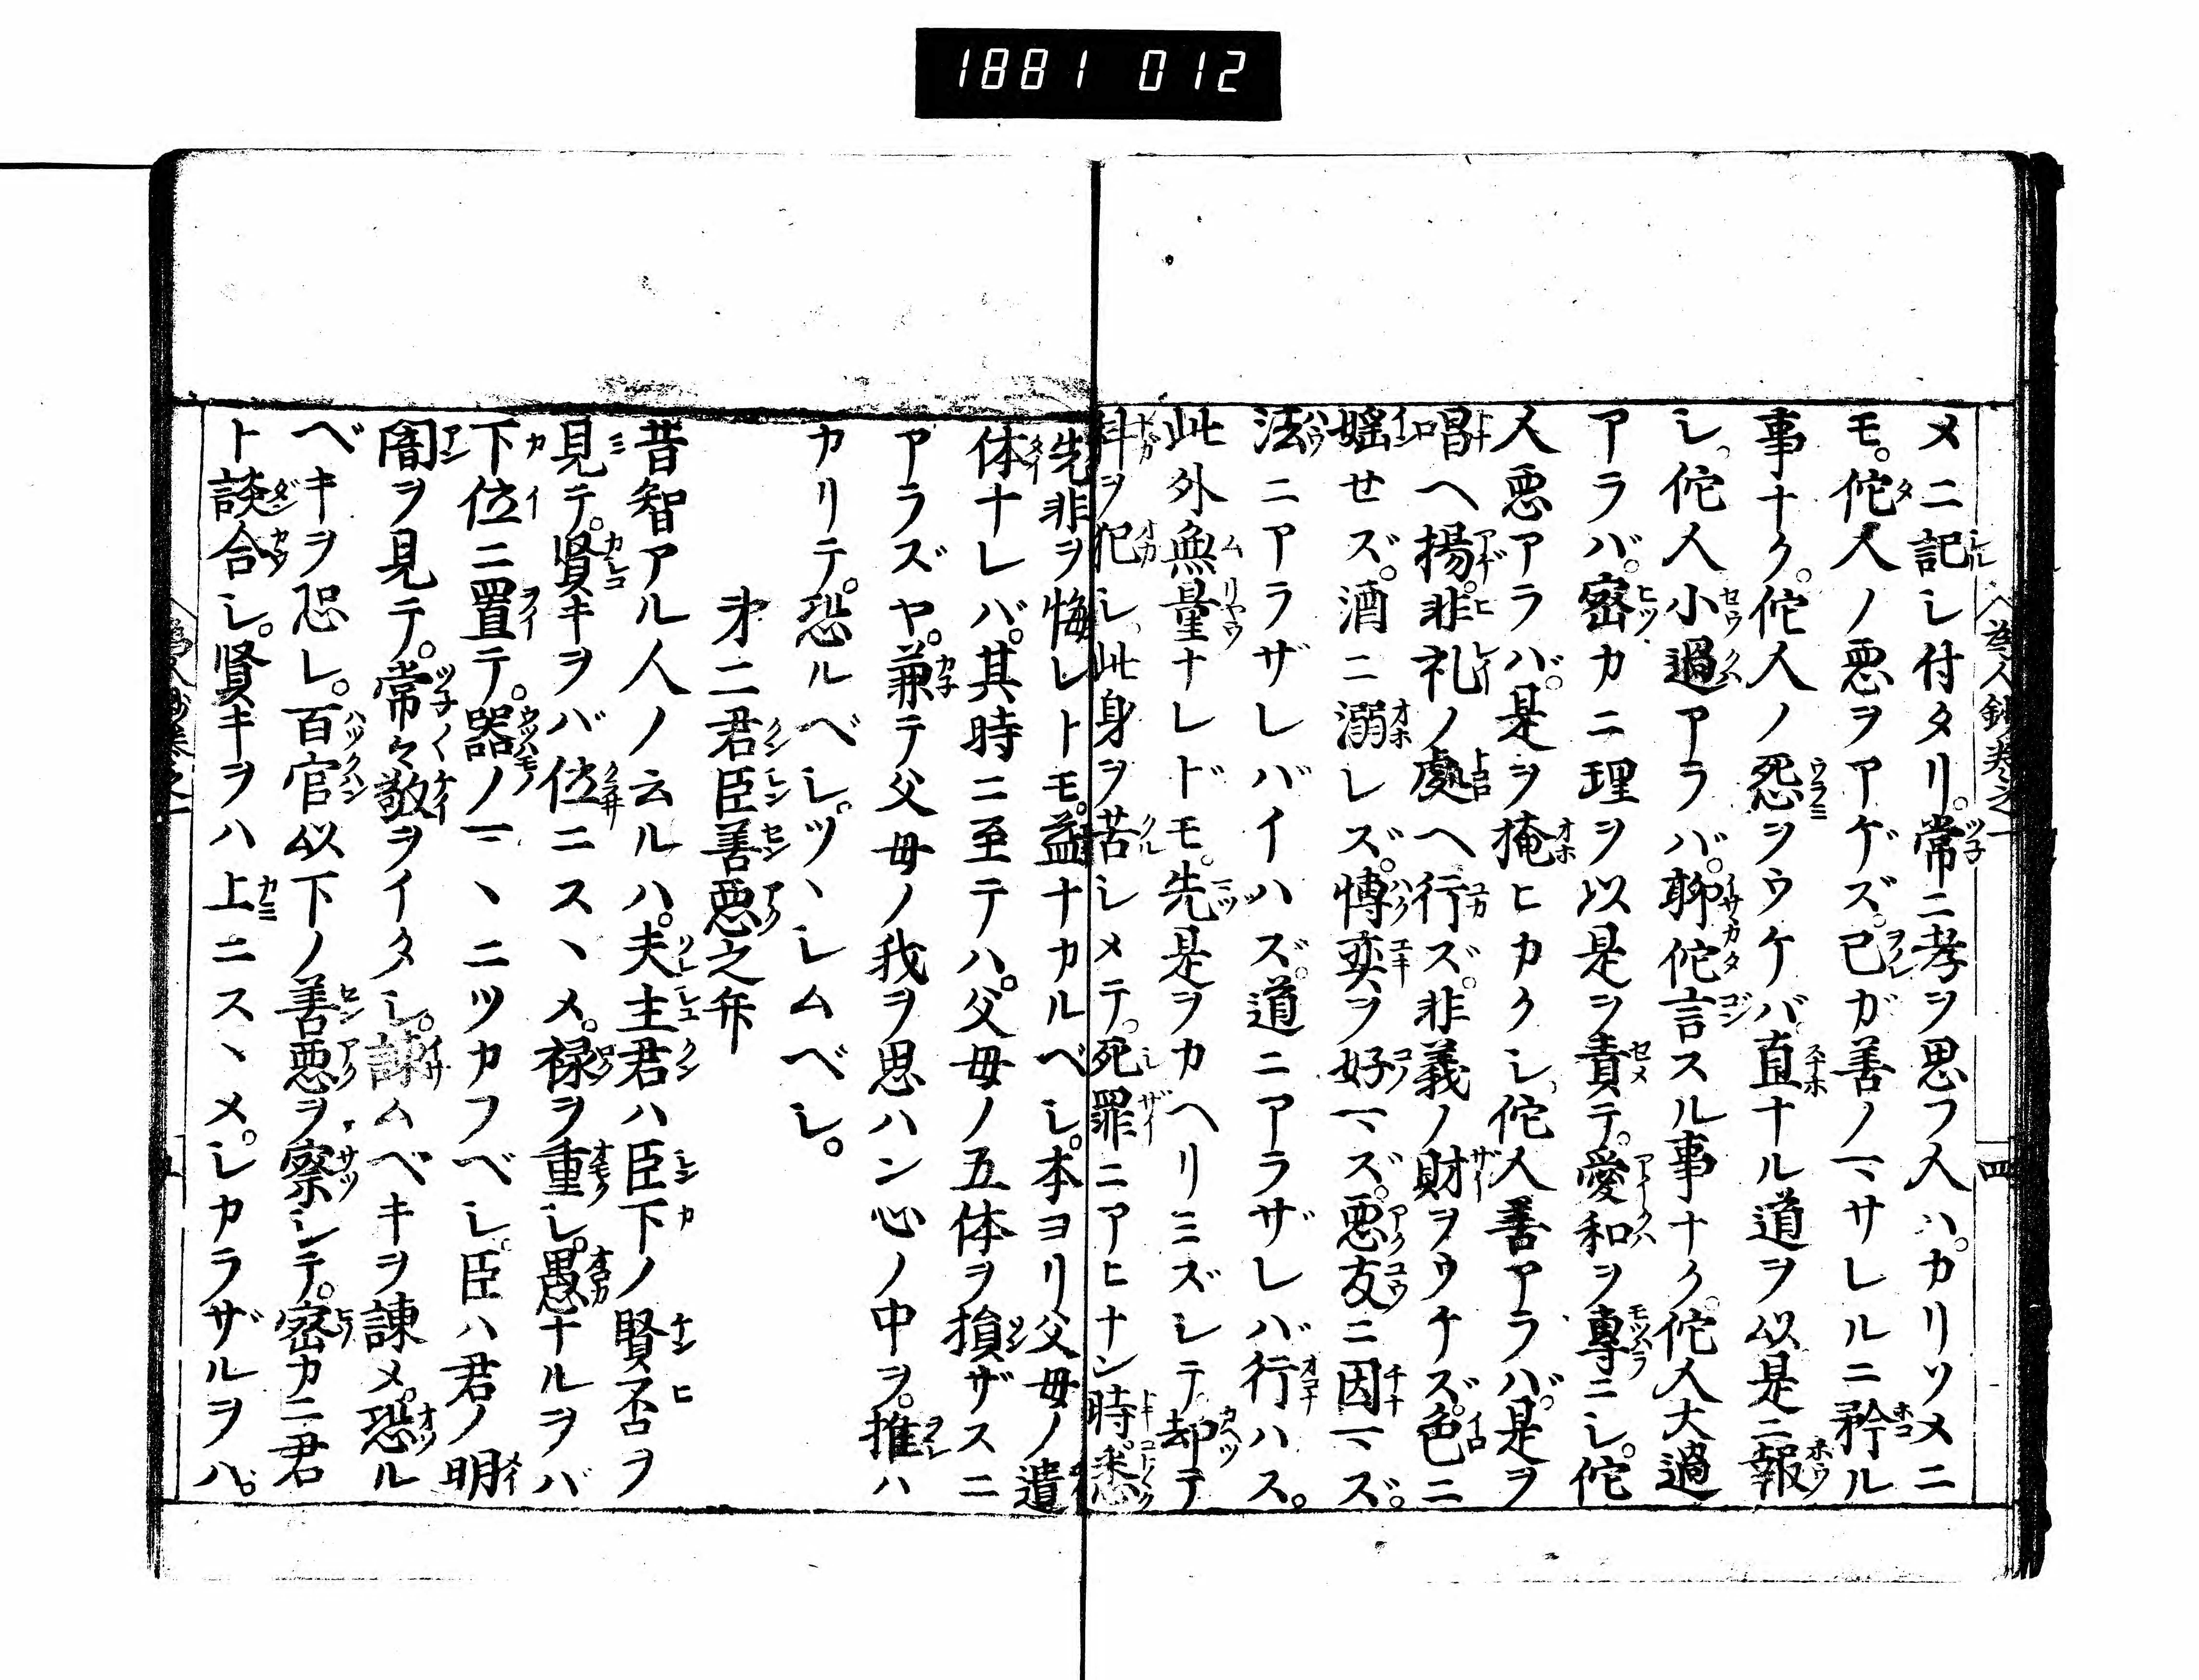 1881 012
為人鈔巻之一
四
メニ記シ付タリ。常ニ孝ヲ思フ人ハ。カリソメニ
モ。佗人ノ悪ヲアゲズ。己ガ善ノマサレルニ矜ル
事ナク。佗人ノ怨ヲウケバ直ナル道ヲ以是ニ報
シ。佗人小過アラバ。聊佗言スル事ナク。佗人大過
アラバ。密カニ理ヲ以是ヲ責テ。愛和ヲ專ニシ。佗
人悪アラバ。是ヲ掩ヒカクシ。佗人善アラバ。是ヲ
唱ヘ揚。非礼ノ處ヘ行ズ。非義ノ財ヲウケズ。色ニ
婬セズ。酒ニ溺レズ。博奕ヲ好マズ。悪友ニ因マズ。
法ニアラザレバイハズ。道ニアラザレバ行ハス。
此外無量ナレドモ。先是ヲカヘリミズシテ却テ
科ヲ犯シ。此身ヲ苦シメテ。死罪ニアヒナン時。悉
先非ヲ悔レトモ。益ナカルベシ。本ヨリ父母ノ遺
体ナレバ。其時ニ至テハ。父母ノ五体ヲ損ザスニ
アラズヤ。兼テ父母ノ我ヲ思ハン心ノ中ヲ。推ハ
カリテ。恐ルベシ。ツヽシムベシ。
㐧二君臣善悪之弁
昔智アル人ノ云ルハ。夫主君ハ臣下ノ賢否ヲ
見テ。賢キヲバ位ニスヽメ。禄ヲ重シ。愚ナルヲバ
下位ニ置テ。器ノマヽニツカフベシ。臣ハ君ノ明
闇ヲ見テ。常々敬ヲイタシ。諌ムベキヲ諌メ。恐ル
ベキヲ恐レ。百官以下ノ善悪ヲ察シテ。密カニ君
ト談合シ。賢キヲハ上ニスヽメ。シカラザルヲハ。